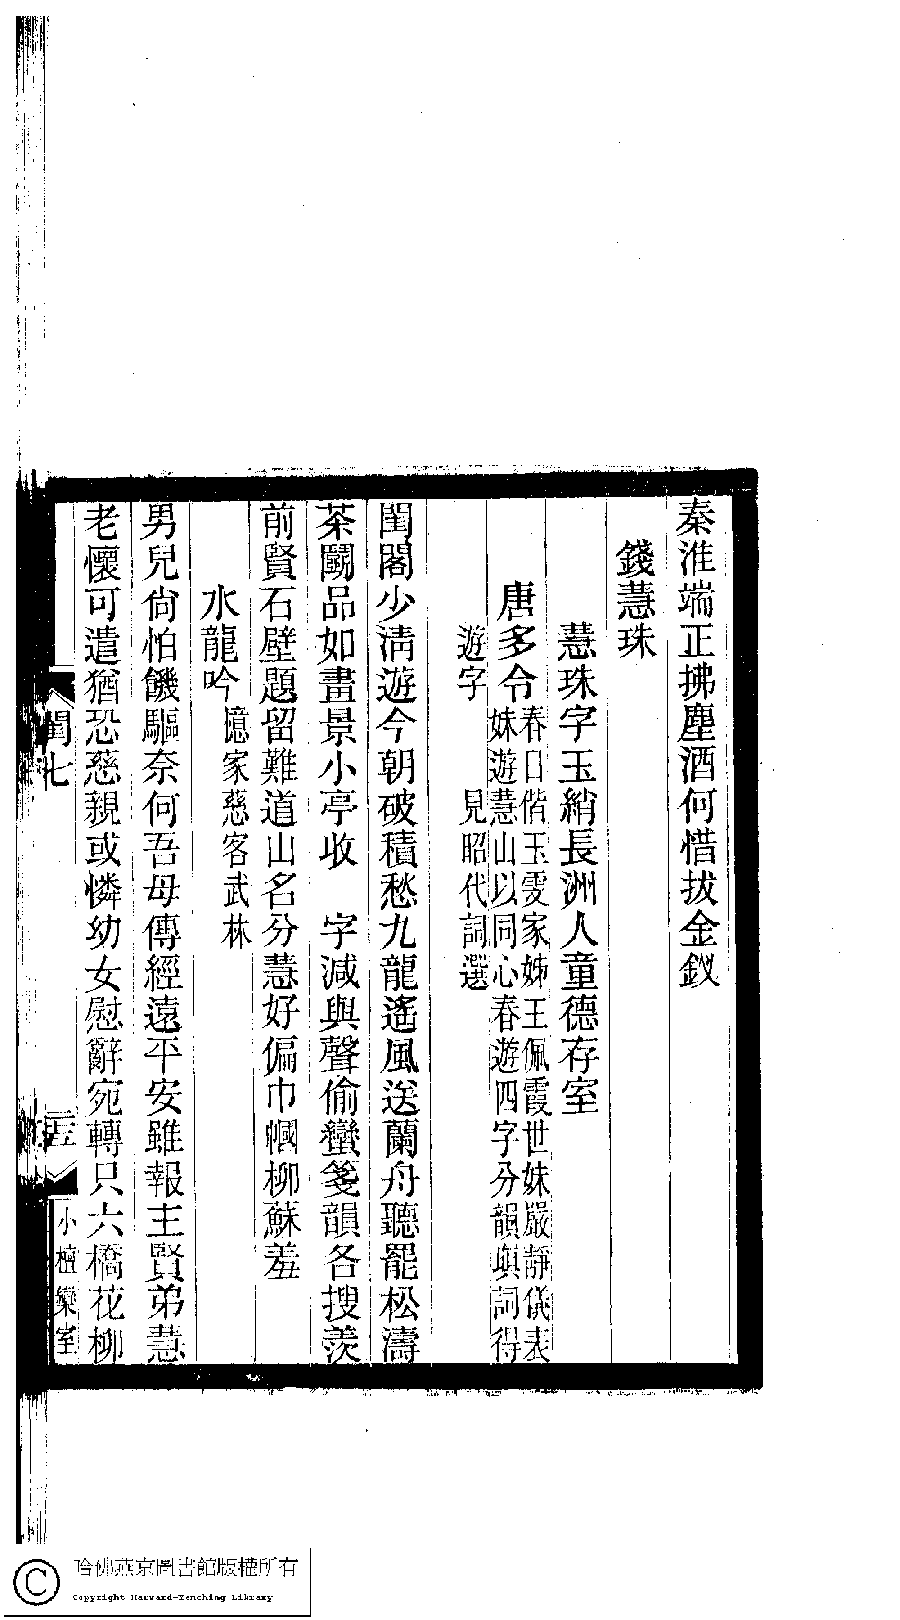 秦淮端正拂塵酒何惜拔金釵
錢慧珠
慧珠字玉綃長洲人童德存室
唐多令 春日偕玉雯家姊王佩霞世妹嚴靜儀表
妹遊慧山以同心春遊四字分韻塡詞得
遊字　見昭代詞選
閨閣少淸遊今朝破積愁九龍遙風送蘭舟聽罷松濤
茶鬭品如畫景小亭收　字減與聲偷蠻箋韻各搜羨
前賢石壁題留難道山名分慧好偏巾幗柳蘇羞
水龍吟 憶家慈客武林
男兒尙怕饑驅奈何吾母傳經遠平安雖報主賢弟慧
老懷可遣猶恐慈親或憐幼女慰辭宛轉只六橋花柳
閨七
小檀欒室
哈佛燕京圖書館版權所有
Copyright Harvard-Yenching Library